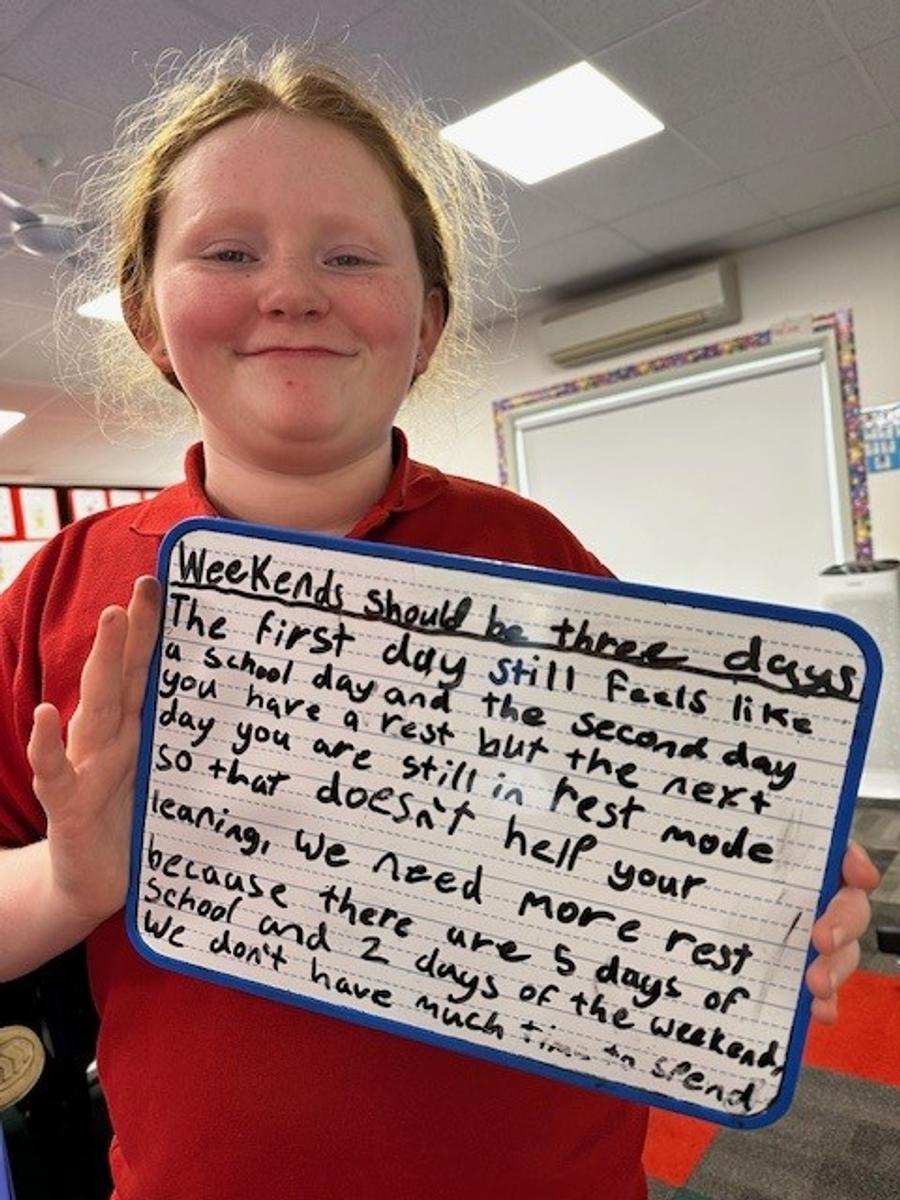 Weekends should be three days
The first day still feels like
a school day and the second day
you have a rest but the next
day you are still in rest mode
so that doesn't help your
leaning, we need more rest
because there are 5 days of
school and 2 days of the weekend,
We don't have much time to spend